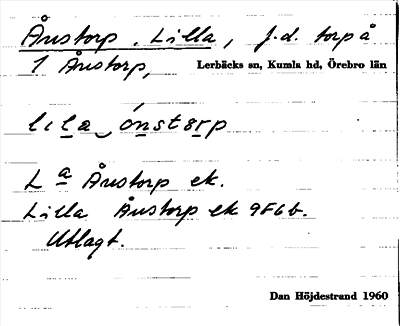 Ånstorp, Lilla, f.d. torp å
1 Ånstorp, Lerbäcks sn, Kumla hd, Örebro län
lɩla ónstǝrp
La Ånstorp ek.
Lilla Ånstorp ek 9F6b.
Utlagt.
Dan Höjdestrand 1960